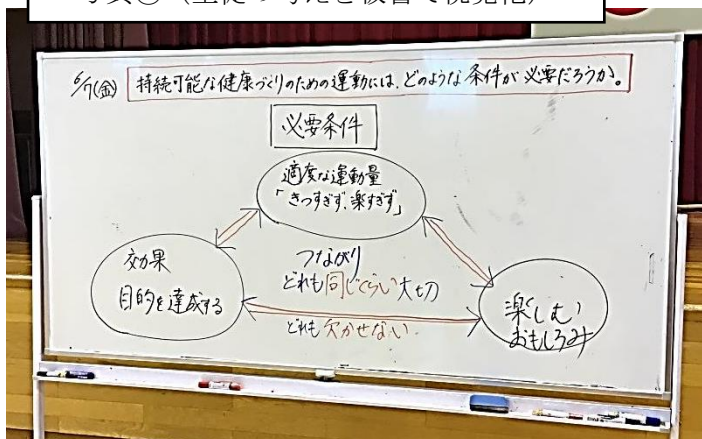 写真①（生徒の考えを板書で視覚化）
6/7(金) 持続可能な健康づくりのための運動には、どのような条件が必要だろうか。
必要条件
適度な運動量
「きつすぎず、楽すぎず」
効果
目的を達成する
つながり
どれも同じくらい大切
どれも欠かせない
楽しむ
おもしろみ